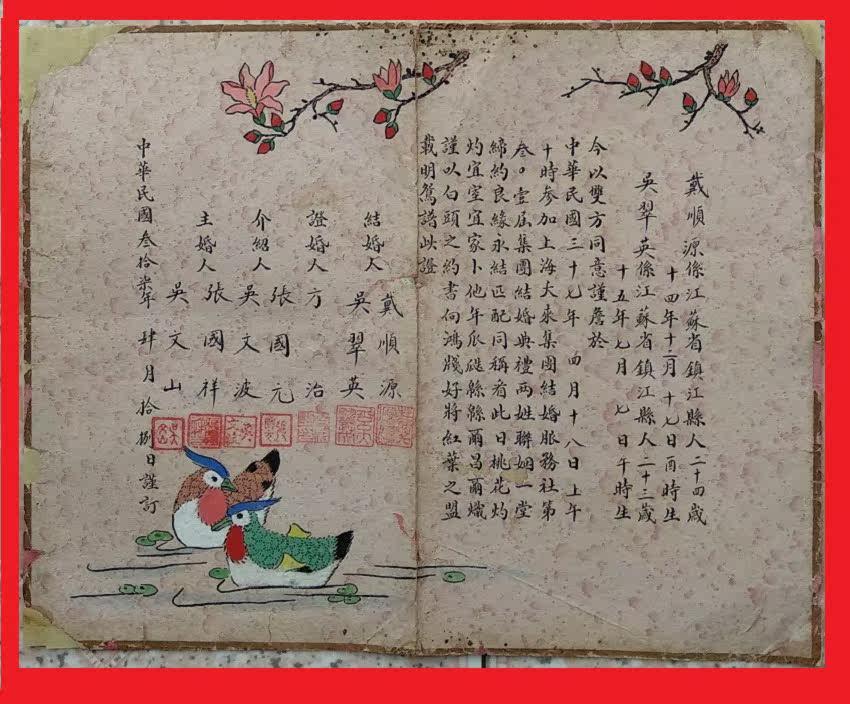 戴順源係江蘇省鎮江縣人二十四歲
十四年十二月十七日酉時生
吳翠英係江蘇省鎮江縣人二十三歲
十五年七月七日午時生
今以雙方同意謹詹於
中華民國三十七年四月十八日上午
十時參加上海大來集團結婚服務社第
叁〇壹屆集團結婚典禮兩姓聯姻一堂
締約良緣永結匹配同稱看此日桃花灼
灼宜室宜家卜他年瓜瓞緜緜爾昌爾熾
謹以白頭之約書向鴻牋好將紅葉之盟
載明鴛譜此證
結婚人戴順源
吳翠英
證婚人方治
介紹人張國元
吳文波
主婚人張國祥
吳文山
中華民國叁拾柒年肆月拾捌日謹訂